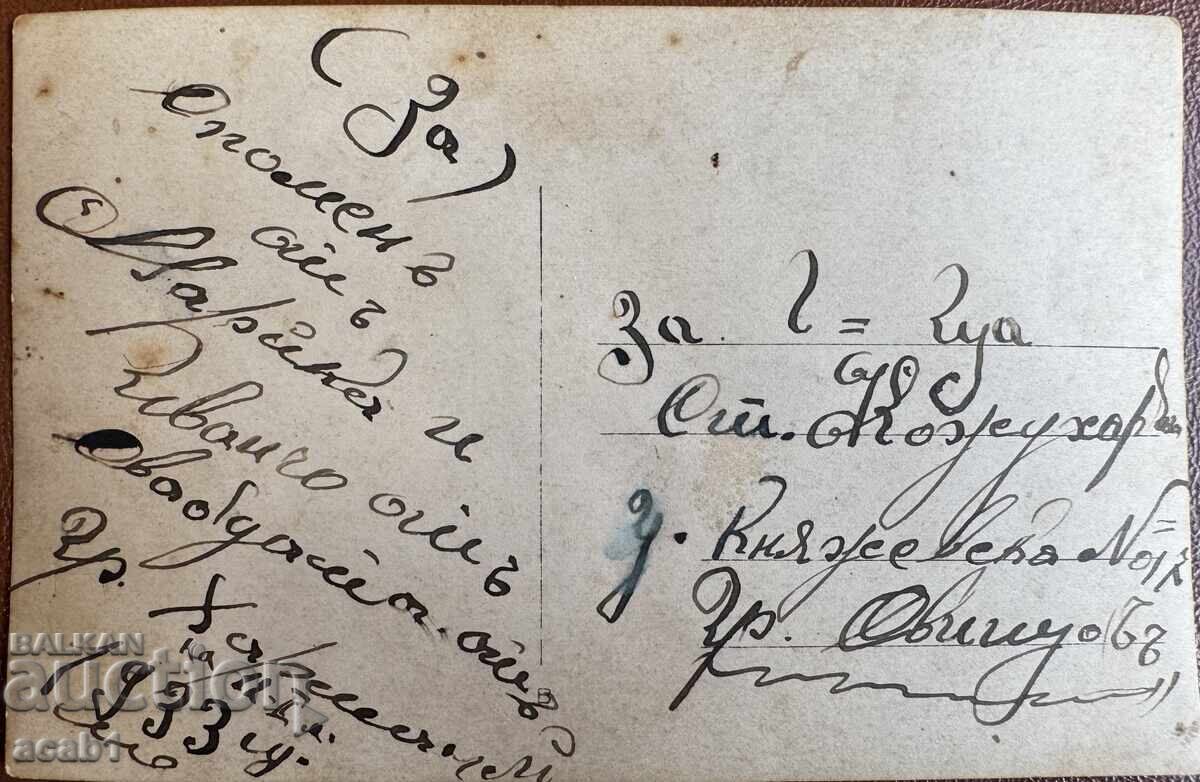 (За)
споменъ
отъ
Марийка и
Иванчо отъ
Сватбата. отъ
гр.
1933 год.
За Г = ца
Ст. Кожухарови
У. Княжевска №
Гр. Свищовъ
BALKAN
auction
acab1